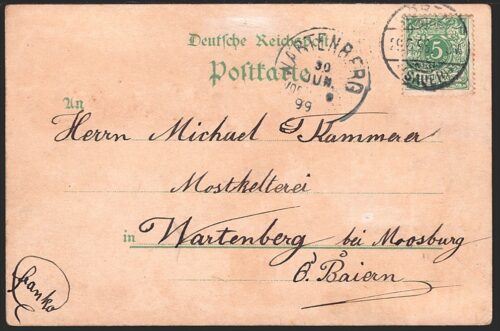 Deutsche Reichspost
Postkarte
WARTENBERG
30
JUN.
99
5
An
Herrn Michael Kammerer
Mostkelterei
in Wartenberg bei Moosburg
O. Baiern
franko